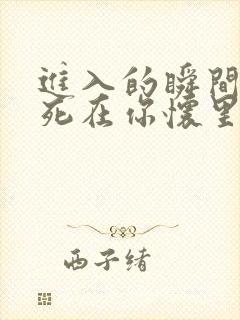 进入的瞬間
死在你懷里
西子绪